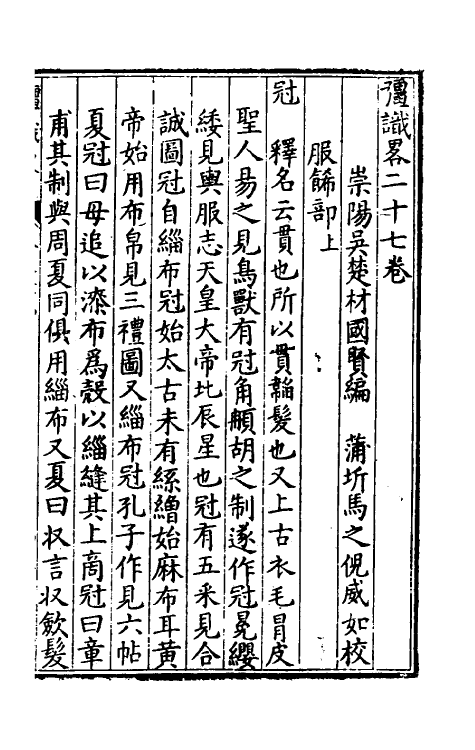 彊識畧二十七卷
崇陽吳楚材國賢編 蒲圻馬之倪威如校
服餙部上
冠 釋名云貫也所以貫韜髮也又上古衣毛冒皮
聖人昜之見鳥獸有冠角䫇胡之制遂作冠冕纓
緌見輿服志天皇大帝北辰星也冠有五采見合
誠圖冠自緇布冠始太古未有絲繒始麻布耳黃
帝始用布帛見三禮圖又緇布冠孔子作見六帖
夏冠曰毋追以漆布爲殼以緇縫其上商冠曰章
甫其制與周夏同俱用緇布又夏曰収言収歛髮